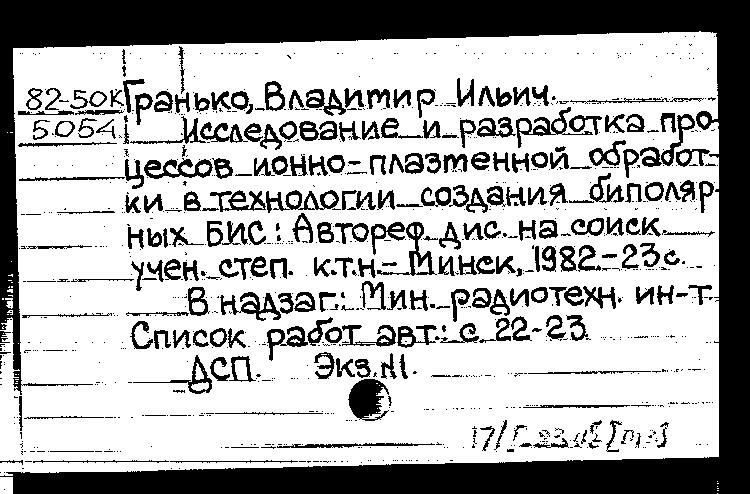 82-50К Гранько, Владимир Ильич.
5054 Исследование и разработка про-
цессов ионно-плазменной обработ-
ки в технологии создания биполяр-
ных БИС : Автореф. дис. на соиск.
учен. степ. к.т.н.- Минск, 1982.-23с.
В надзаг.: Мин. радиотехн. ин-т.
Список работ авт.: с. 22-23
ДСП. Экз.№1.
17/